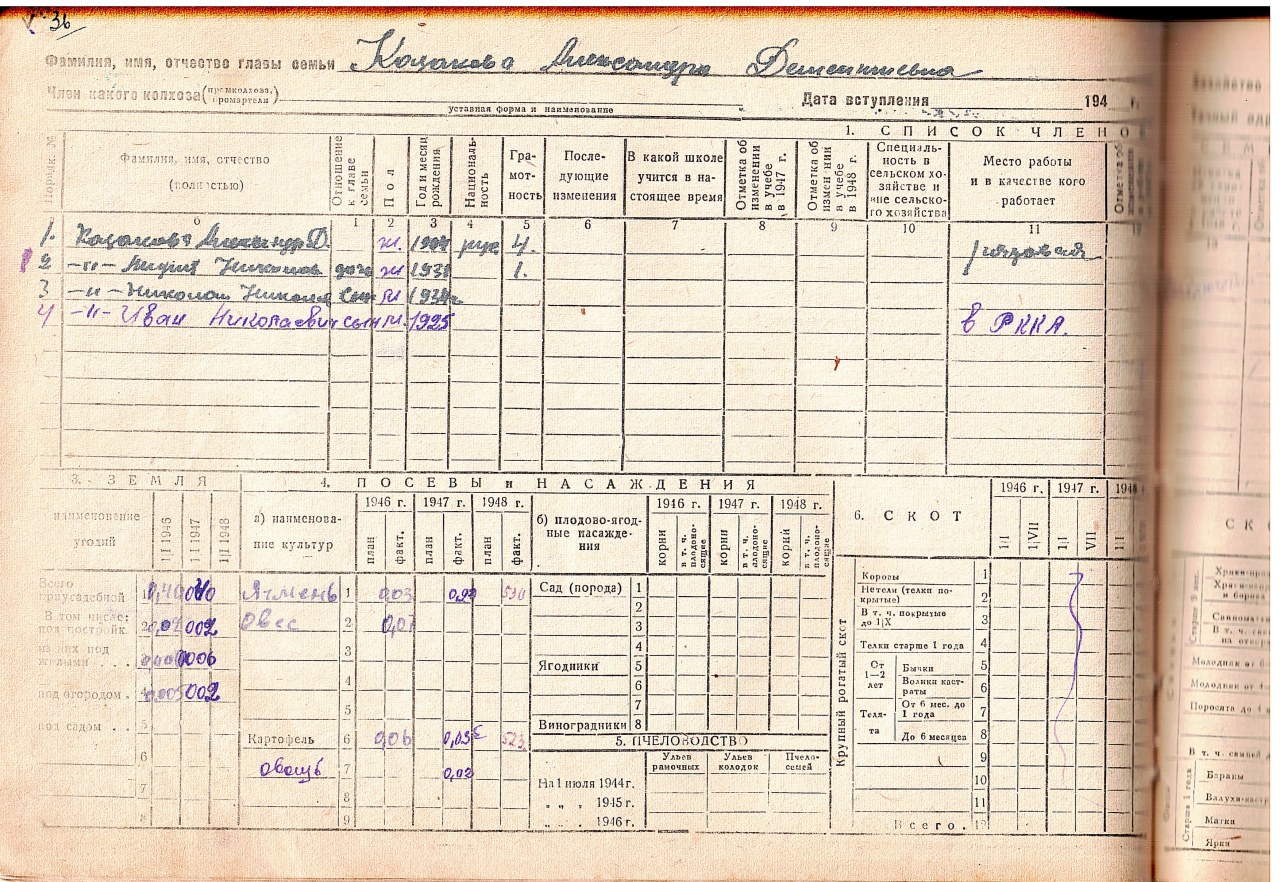 36
Фамилия, имя, отчество главы семьи Казакова Александра Дементьевна
Член какого колхоза (промколхоза, промартели)
уставная форма и наименование
Дата вступления 194 г.
1. СПИСОК ЧЛЕНО
Порядк. №
Фамилия, имя, отчество (полностью)
Отношение к главе семьи
Пол
Год и месяц рождения
Национальность
Грамотность
Последующие изменения
В какой школе учится в настоящее время
Отметка об изменении в учебе в 1947 г.
Отметка об изменении в учебе в 1948 г.
Специальность в сельском хозяйстве и вне сельского хозяйства
Место работы и в качестве кого работает
1 2 3 4 5 6 7 8 9 10 11
1. Казакова Александр Д. ж. 1904 рус 4. рядовая
2 -"- дочь ж 1931 1.
3 -"- Николай Никола сын м 1934г
4 -"- Иван Николаевич сын м. 1925 в РККА.
3. ЗЕМЛЯ
наименование угодий
1|I 1946
1|I 1947
1|I 1948
Всего приусадебной 1 0,40
В том числе: под постройк. 2 0,02 002
из них под жилыми . . . 3 0006
под огородом . 4 0,005 002
под садом . . 5
6
7
8
4. ПОСЕВЫ и НАСАЖДЕНИЯ
а) наименование культур
1946 г. 1947 г. 1948 г.
план факт. план факт. план факт.
Ячмень 1 0,03 530
Овес 2 0,07
3
4
5
Картофель 6 0,06 0,05 523
овощь 7 0,02
8
9
б) плодово-ягодные насаждения
1946 г. 1947 г. 1948 г.
корни в т. ч. плодоносящие корни в т. ч. плодоносящие корни в т. ч. плодоносящие
Сад (порода) 1
2
3
4
Ягодники 5
6
7
Виноградники 8
5. ПЧЕЛОВОДСТВО
Ульев рамочных
Ульев колодок
Пчелосемей
На 1 июля 1944г.
" " " 1945г.
" " " 1946г.
6. СКОТ
1946 г. 1947 г. 1948
1|I 1|VII 1|I VII 1|I
Крупный рогатый скот
Коровы 1
Нетели (телки покрытые) 2
В т. ч. покрытые до 1|X 3
Телки старше 1 года 4
От 1—2 лет
Бычки 5
Волики кастраты 6
Телята
От 6 мес. до 1 года 7
До 6 месяцев 8
9
10
11
Всего. 12
СК
В т. ч. свиней
Старше 1 года
Бараны
Валухи-каст
Матки
Ярки